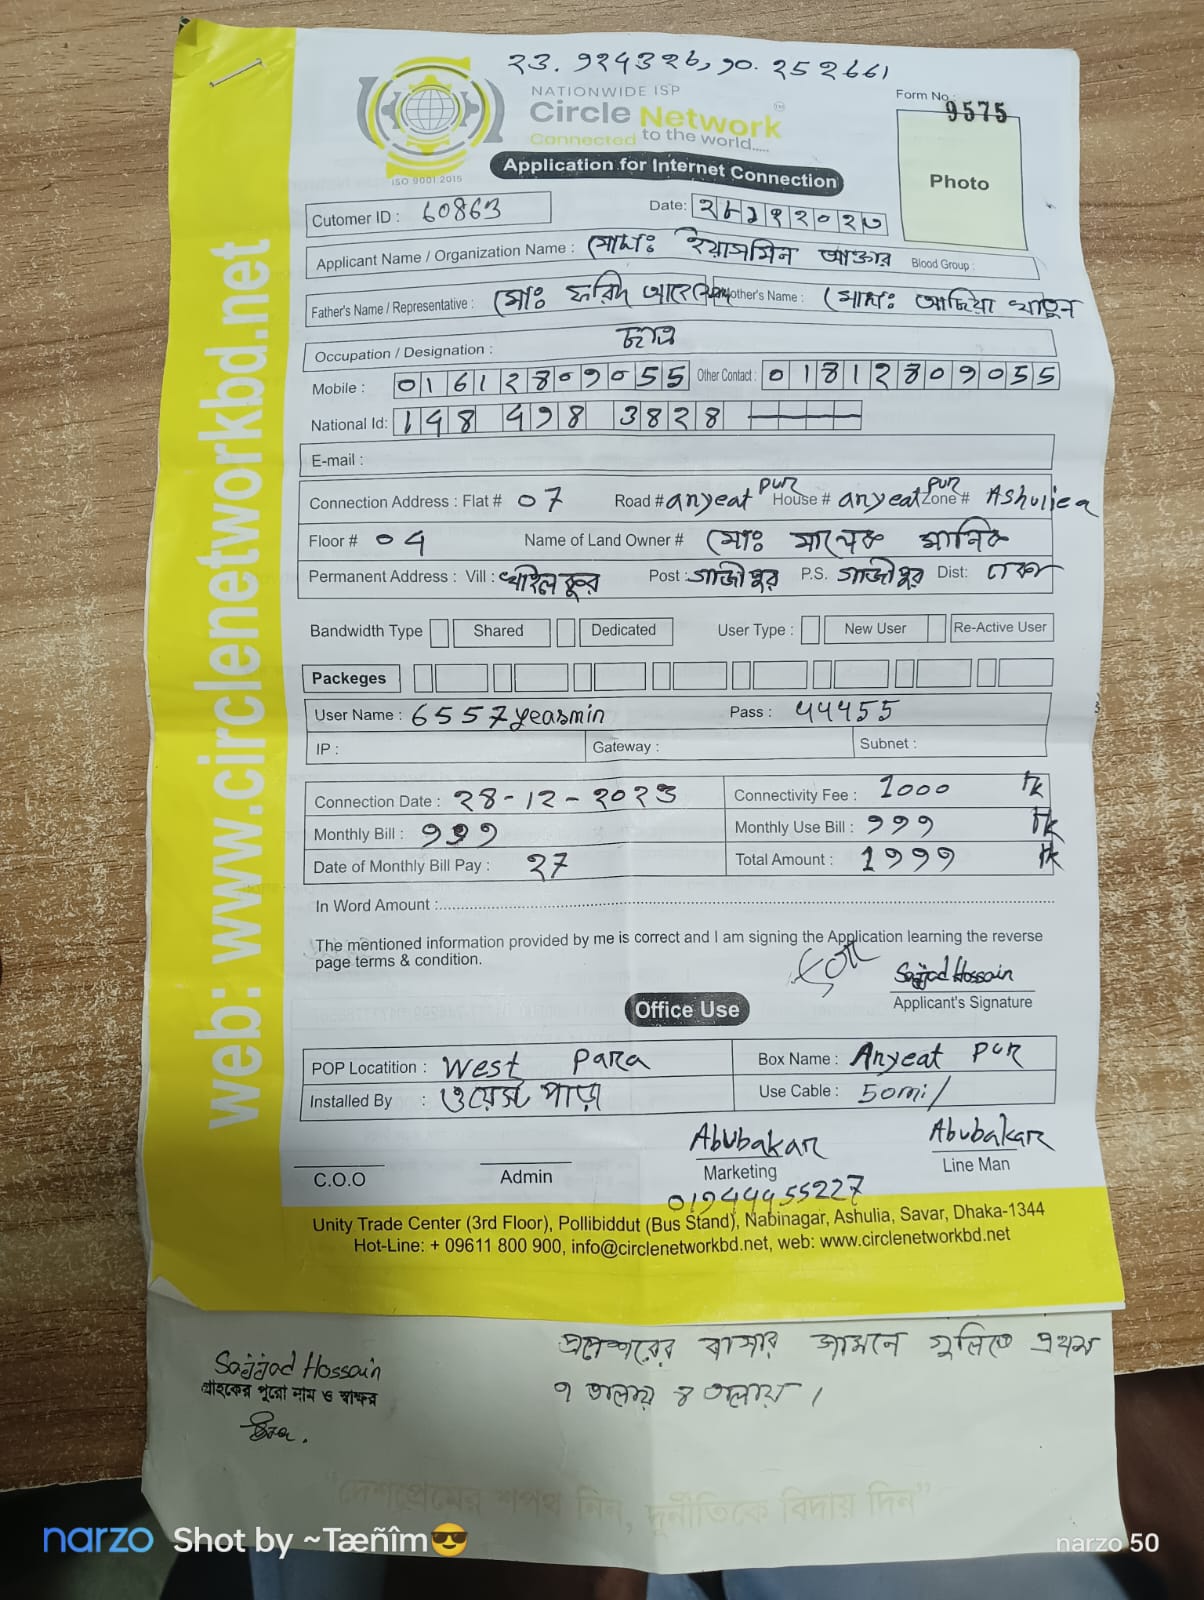 23.924326, 90.252661
NATIONWIDE ISP
Circle Network
Connected to the world.....
ISO 9001:2015
Form No : 9575
Application for Internet Connection
Photo
Cutomer ID : 60863
Date: 28122023
Applicant Name / Organization Name : মোছাঃ ইয়াসমিন আক্তার Blood Group :
Father's Name / Representative : মোঃ ফরিদ Mother's Name : মোছাঃ আছিয়া খাতুন
Occupation / Designation :
Mobile : 01612809055 Other Contact : 01812809055
National Id: 148 498 3828
E-mail :
Connection Address : Flat # 07 Road # anyeat pur House # anyeat pur Zone # Ashuliea
Floor # 04 Name of Land Owner # মোঃ মানিক
Permanent Address : Vill : খাইলকুর Post : গাজীপুর P.S. গাজীপুর Dist: ঢাকা
Bandwidth Type Shared Dedicated User Type : New User Re-Active User
Packeges
User Name : 6557yeasmin Pass : 44455
IP : Gateway : Subnet :
Connection Date : 28-12-2023 Connectivity Fee : 1000 Tk
Monthly Bill : 999 Monthly Use Bill : 999 Tk
Date of Monthly Bill Pay : 27 Total Amount : 1999 Tk
In Word Amount :
The mentioned information provided by me is correct and I am signing the Application learning the reverse
page terms & condition.
Sajjad Hossain
Applicant's Signature
Office Use
POP Locatition : West Para Box Name : Anyeat pur
Installed By : ওয়েস্ট পাড়া Use Cable : 50mi/
Abubakar Abubakar
C.O.O Admin Marketing Line Man
01944455227
Unity Trade Center (3rd Floor), Pollibiddut (Bus Stand), Nabinagar, Ashulia, Savar, Dhaka-1344
Hot-Line: + 09611 800 900, info@circlenetworkbd.net, web: www.circlenetworkbd.net
web: www.circlenetworkbd.net
সামনে গলিতে প্রথম
৭ তলায় ৪ তলায়।
Sajjad Hossain
গ্রাহকের পুরো নাম ও স্বাক্ষর
"দেশপ্রেমের শপথ নিন, দুর্নীতিকে বিদায় দিন"
narzo Shot by ~Tæñîm😎
narzo 50